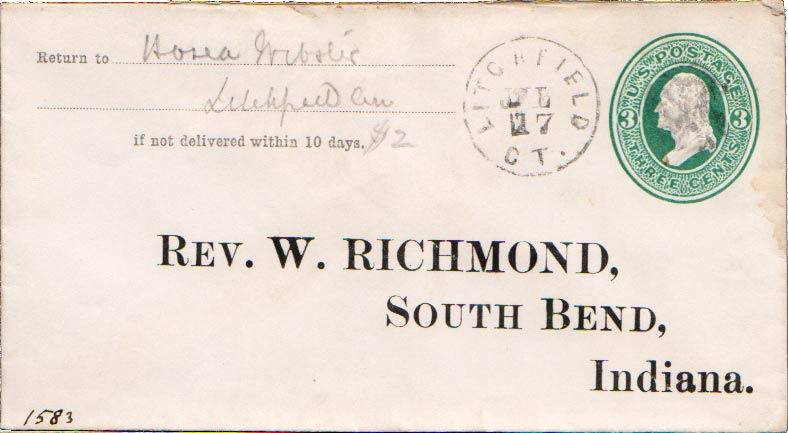 Return to Hosea Webster
Litchfield Con
if not delivered within 10 days. $2
LITCHFIELD
JUL
17
CT.
U.S. POSTAGE
3 3
THREE CENTS
REV. W. RICHMOND,
SOUTH BEND,
Indiana.
1583